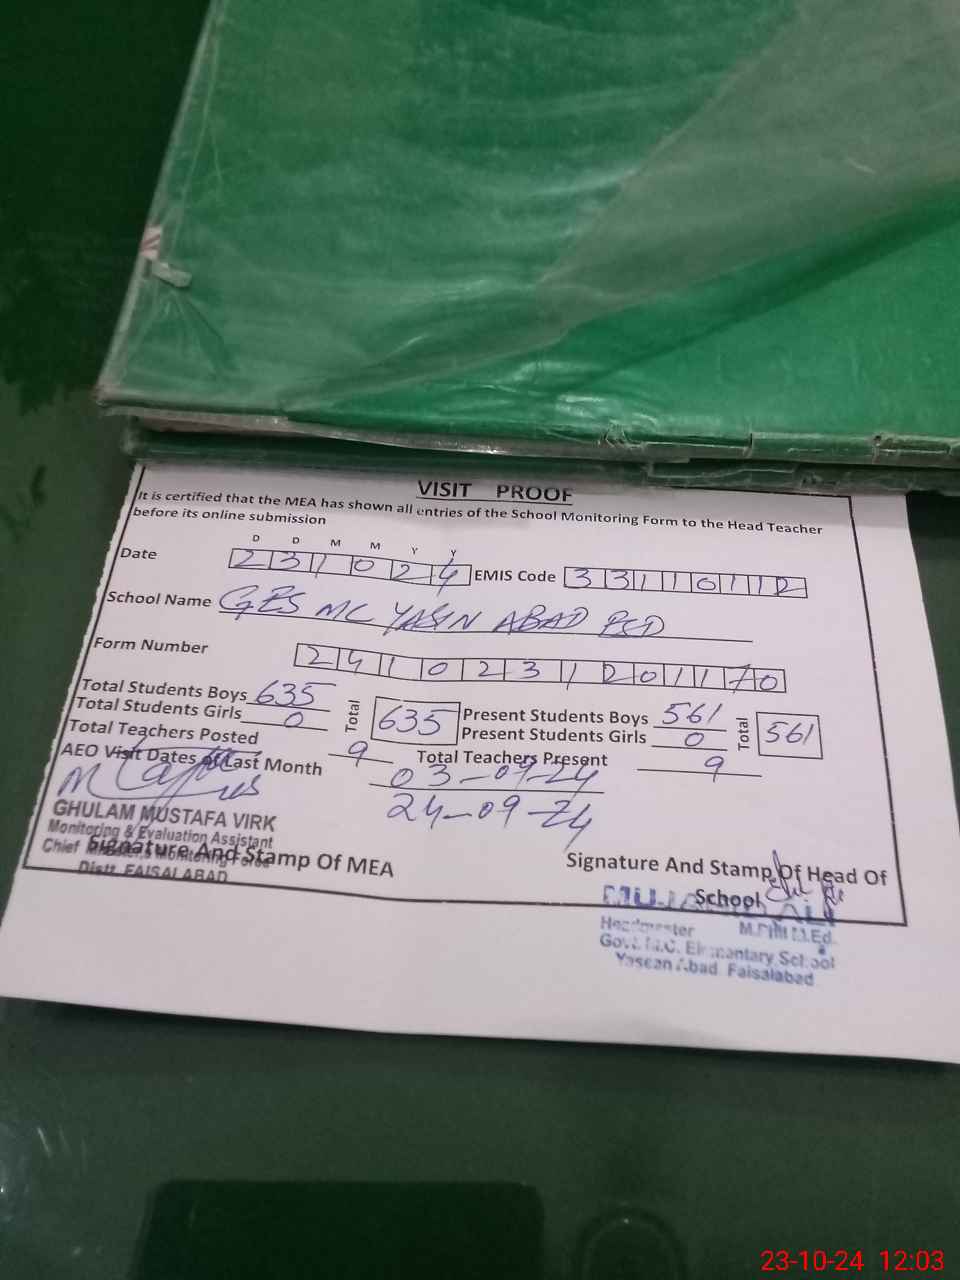 VISIT PROOF
It is certified that the MEA has shown all entries of the School Monitoring Form to the Head Teacher
before its online submission
D D M M Y Y
Date 2 3 1 0 2 4 EMIS Code 3 3 1 1 0 1 1 2
School Name GES MC YASIN ABAD FSD
Form Number 2 4 1 0 2 3 1 2 0 1 1 7 0
Total Students Boys 635 Total 635 Present Students Boys 561 Total 561
Total Students Girls 0 Present Students Girls 0
Total Teachers Posted 9 Total Teachers Present 9
AEO Visit Dates of Last Month 03-09-24
24-09-24
GHULAM MUSTAFA VIRK
Monitoring & Evaluation Assistant
Chief Monitoring Force
Signature And Stamp Of MEA
Distt. FAISALABAD
Signature And Stamp Of Head Of
School
ALI
Headmaster M.Phil M.Ed.
Govt. M.C. Elementary School
Yaseen Abad Faisalabad
23-10-24 12:03